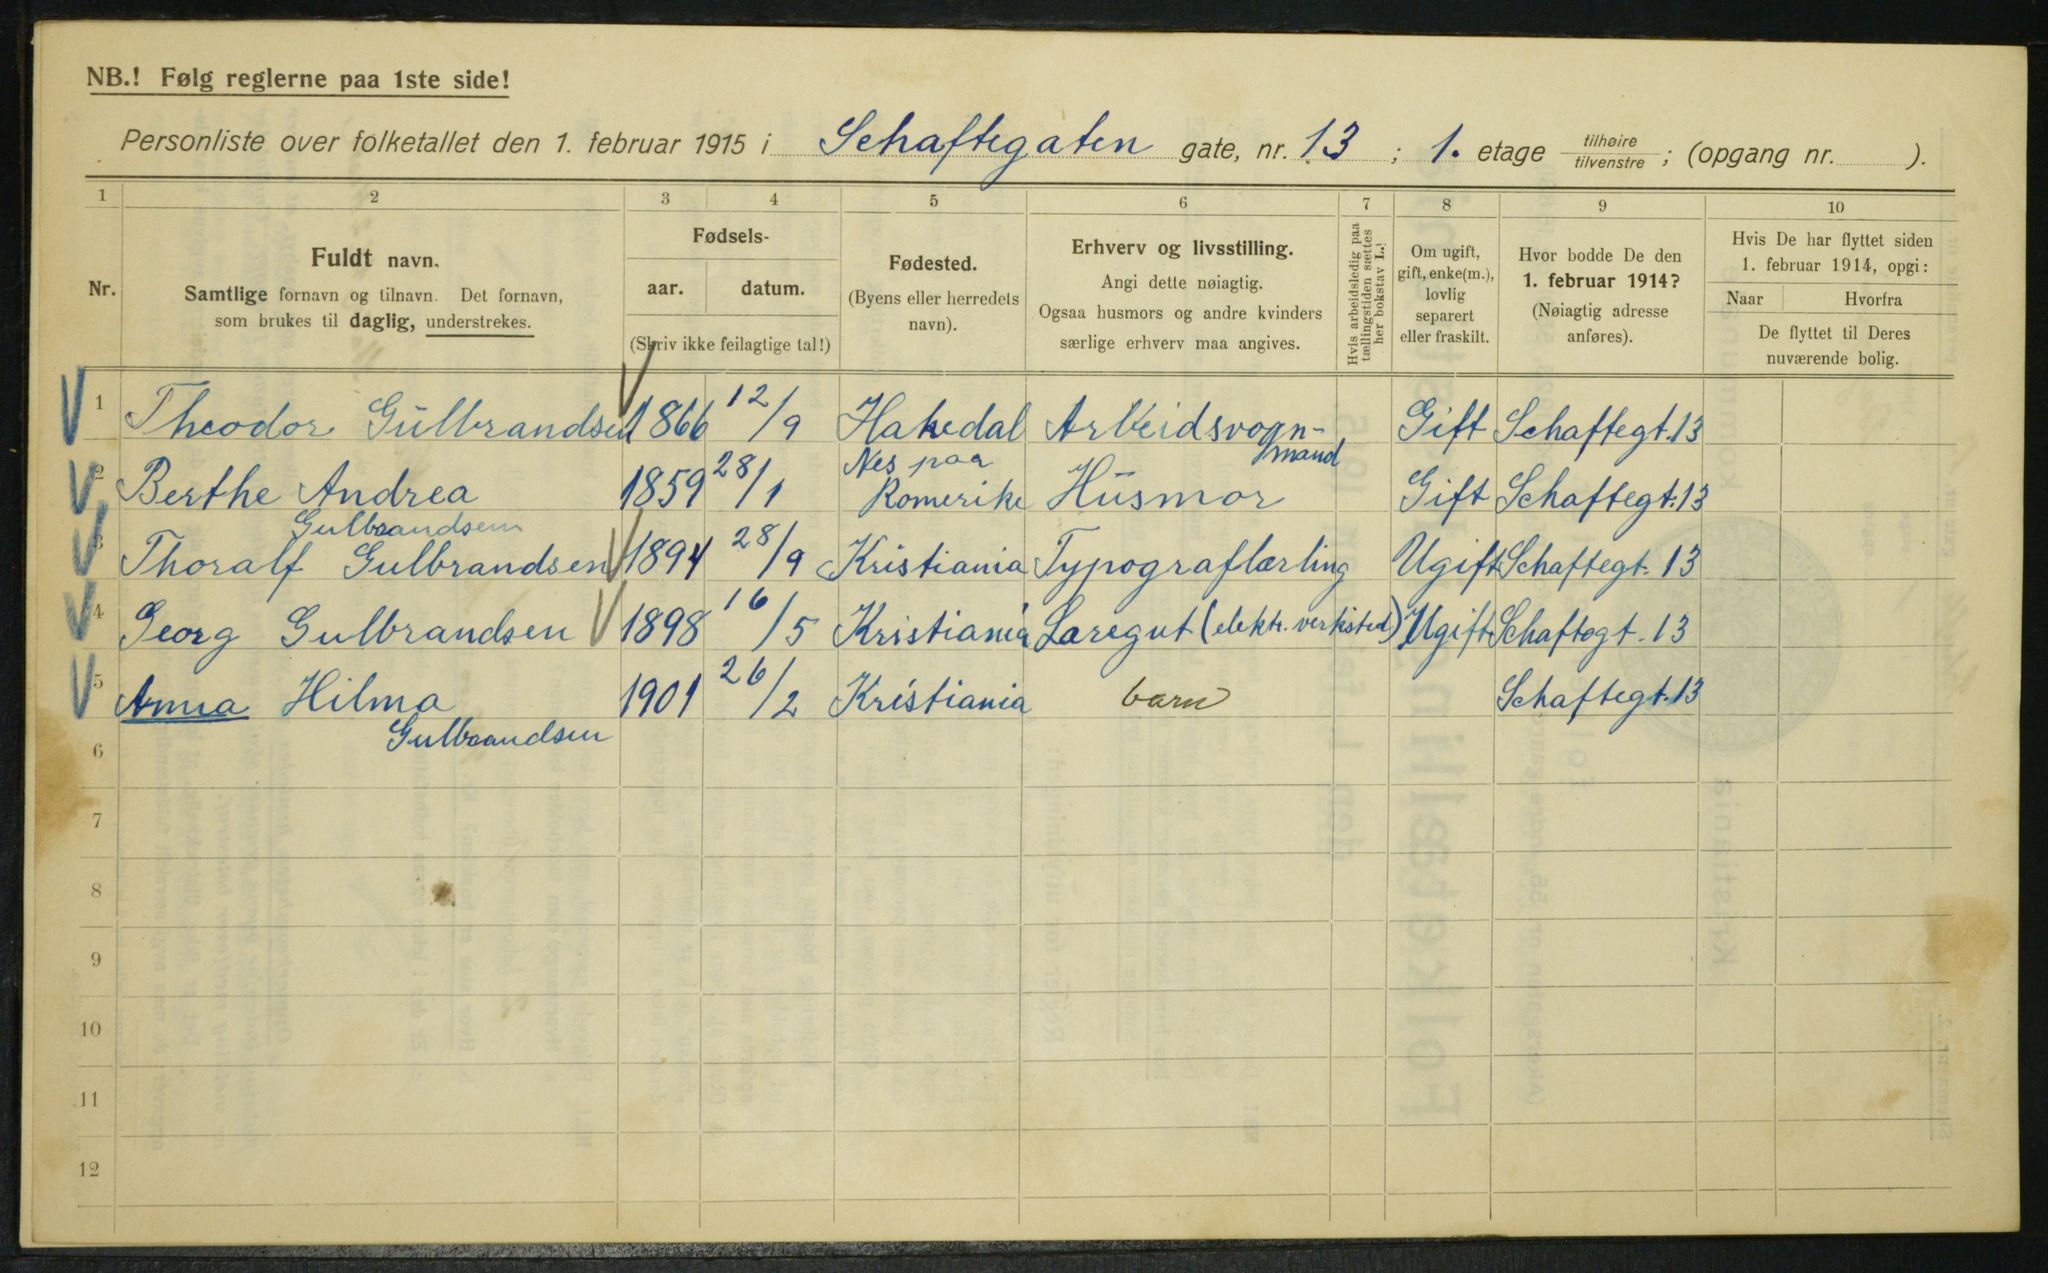 NB.! Følg reglerne paa 1ste side!
Personliste over folketallet den 1. februar 1915 i Schaftegaten gate, nr. 13 ; 1. etage tilhøire tilvenstre ; (opgang nr. ).
1 2 3 4 5 6 7 8 9 10
Nr.
Fuldt navn.
Samtlige fornavn og tilnavn. Det fornavn,
som brukes til daglig, understrekes.
Fødsels-
aar. datum.
(Skriv ikke feilagtige tal!)
Fødested.
(Byens eller herredets
navn).
Erhverv og livsstilling.
Angi dette nøiagtig.
Ogsaa husmors og andre kvinders
særlige erhverv maa angives.
Hvis arbeidsledig paa
tællingstiden sættes
her bokstav L.!
Om ugift,
gift, enke(m.),
lovlig
separert
eller fraskilt.
Hvor bodde De den
1. februar 1914?
(Nøiagtig adresse
anføres).
Hvis De har flyttet siden
1. februar 1914, opgi:
Naar Hvorfra
De flyttet til Deres
nuværende bolig.
1 Theodor Gulbrandsen 1866 12/9 Hakedal Arbeidsvogn-mand Gift Schaftegt. 13
2 Berthe Andrea Gulbrandsen 1859 28/1 Nes paa Romerike Husmor Gift Schaftegt. 13
3 Thoralf Gulbrandsen 1894 28/9 Kristiania Typograflærling Ugift Schaftegt. 13
4 Georg Gulbrandsen 1898 16/5 Kristiania Læregut (elektr. verksted) Ugift Schaftegt. 13
5 Anna Hilma Gulbrandsen 1901 26/2 Kristiania barn Schaftegt. 13
6
7
8
9
10
11
12